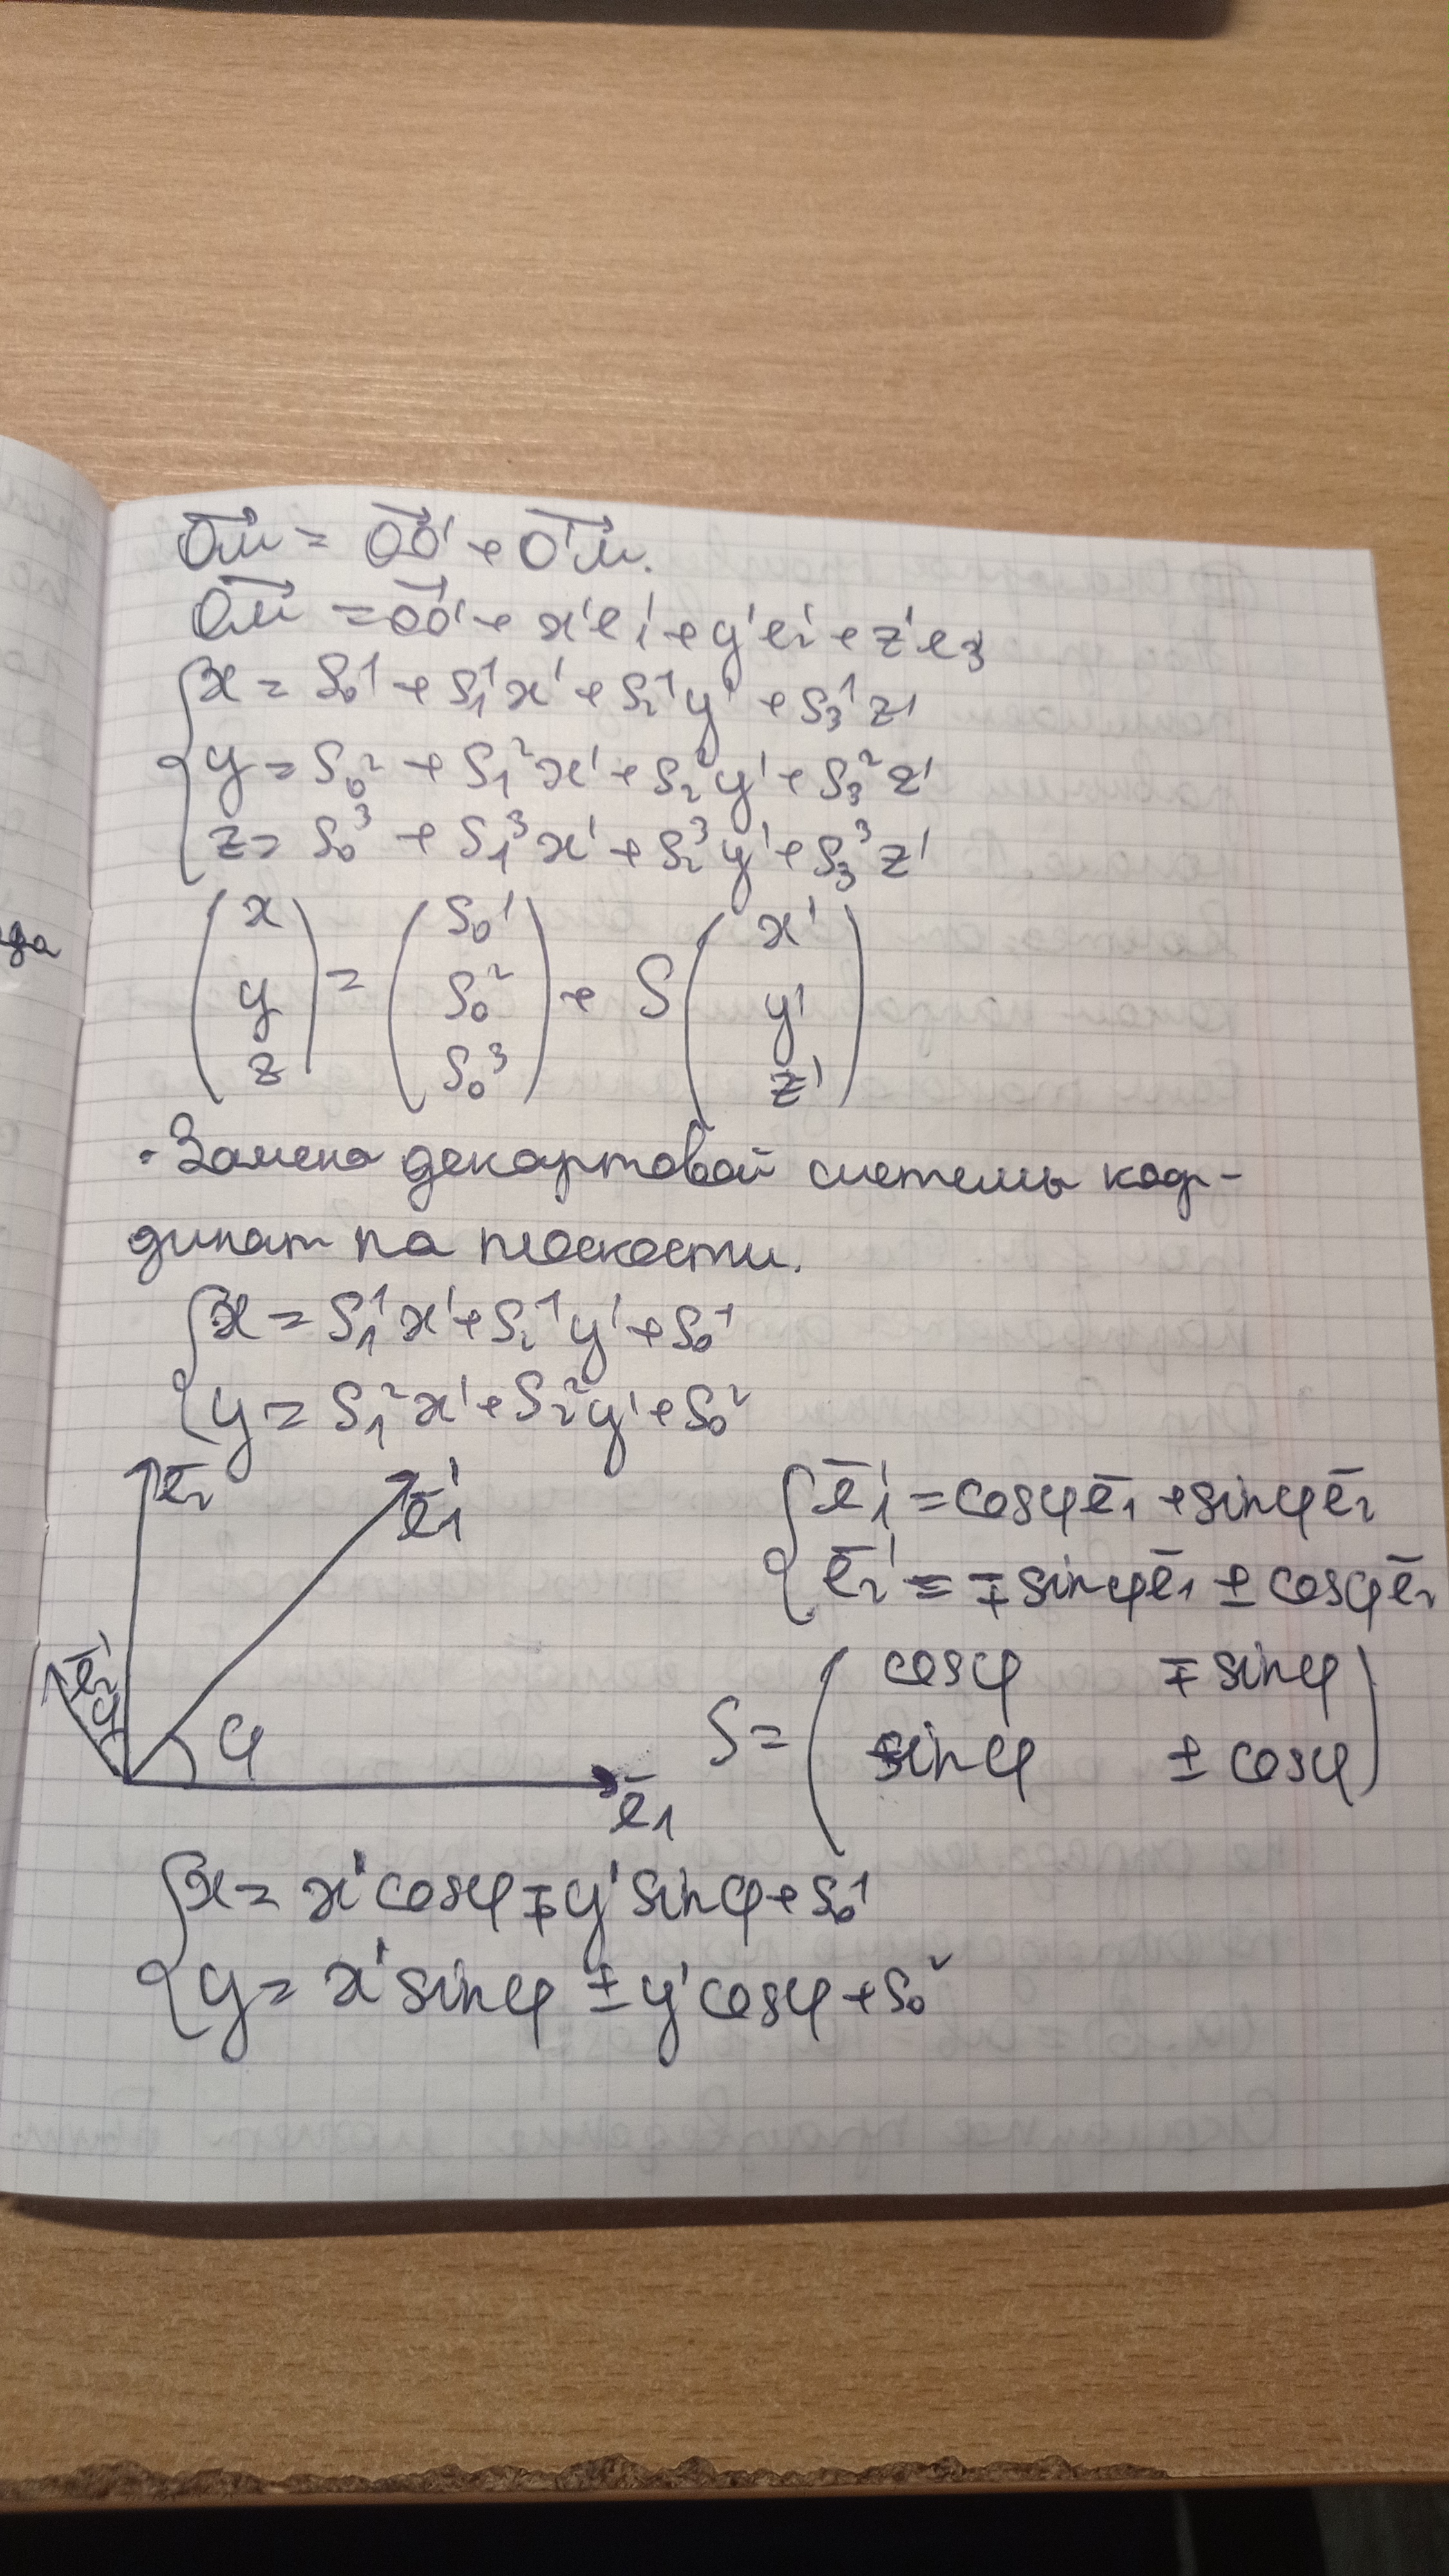 OM = OO' + O'M.
OM = OO' + x'e₁' + y'e₂' + z'e₃'
x = S₀¹ + S₁¹x' + S₂¹y' + S₃¹z'
y = S₀² + S₁²x' + S₂²y' + S₃²z'
z = S₀³ + S₁³x' + S₂³y' + S₃³z'
(x y z) = (S₀¹ S₀² S₀³) + S (x' y' z')
· Замена декартовой системы коор-
динат на плоскости.
x = S₁¹x' + S₂¹y' + S₀¹
y = S₁²x' + S₂²y' + S₀²
e₂
e₁'
e₂'
φ
φ
e₁
e₁' = cosφ e₁ + sinφ e₂
e₂' = ∓ sinφ e₁ ± cosφ e₂
S = ( cosφ ∓ sinφ
sinφ ± cosφ )
x = x' cosφ ∓ y' sinφ + S₀¹
y = x' sinφ ± y' cosφ + S₀²